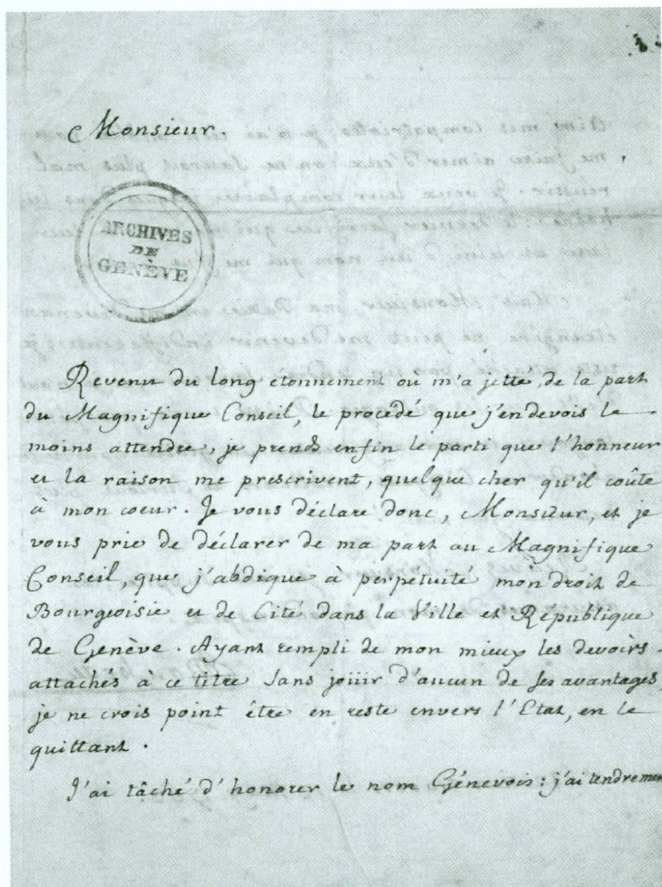 Monsieur.
ARCHIVES
DE
GENÈVE
Revenu du long etonnement ou m'a jetté, de la part
du Magnifique Conseil, le procedé que j'en devois le
moins attendre, je prends enfin le parti que l'honneur
et la raison me prescrivent, quelque cher qu'il coûte
à mon coeur. Je vous déclare donc, Monsieur, et je
vous prie de déclarer de ma part au Magnifique
Conseil, que j'abdique à perpetuité mon droit de
Bourgeoisie et de Cité dans la Ville et République
de Genève. Ayant rempli de mon mieux les devoirs
attachés à ce titre sans joüir d'aucun de ses avantages,
je ne crois point être en reste envers l'Etat, en le
quittant.
J'ai tâché d'honorer le nom Génevois: j'ai tendrement